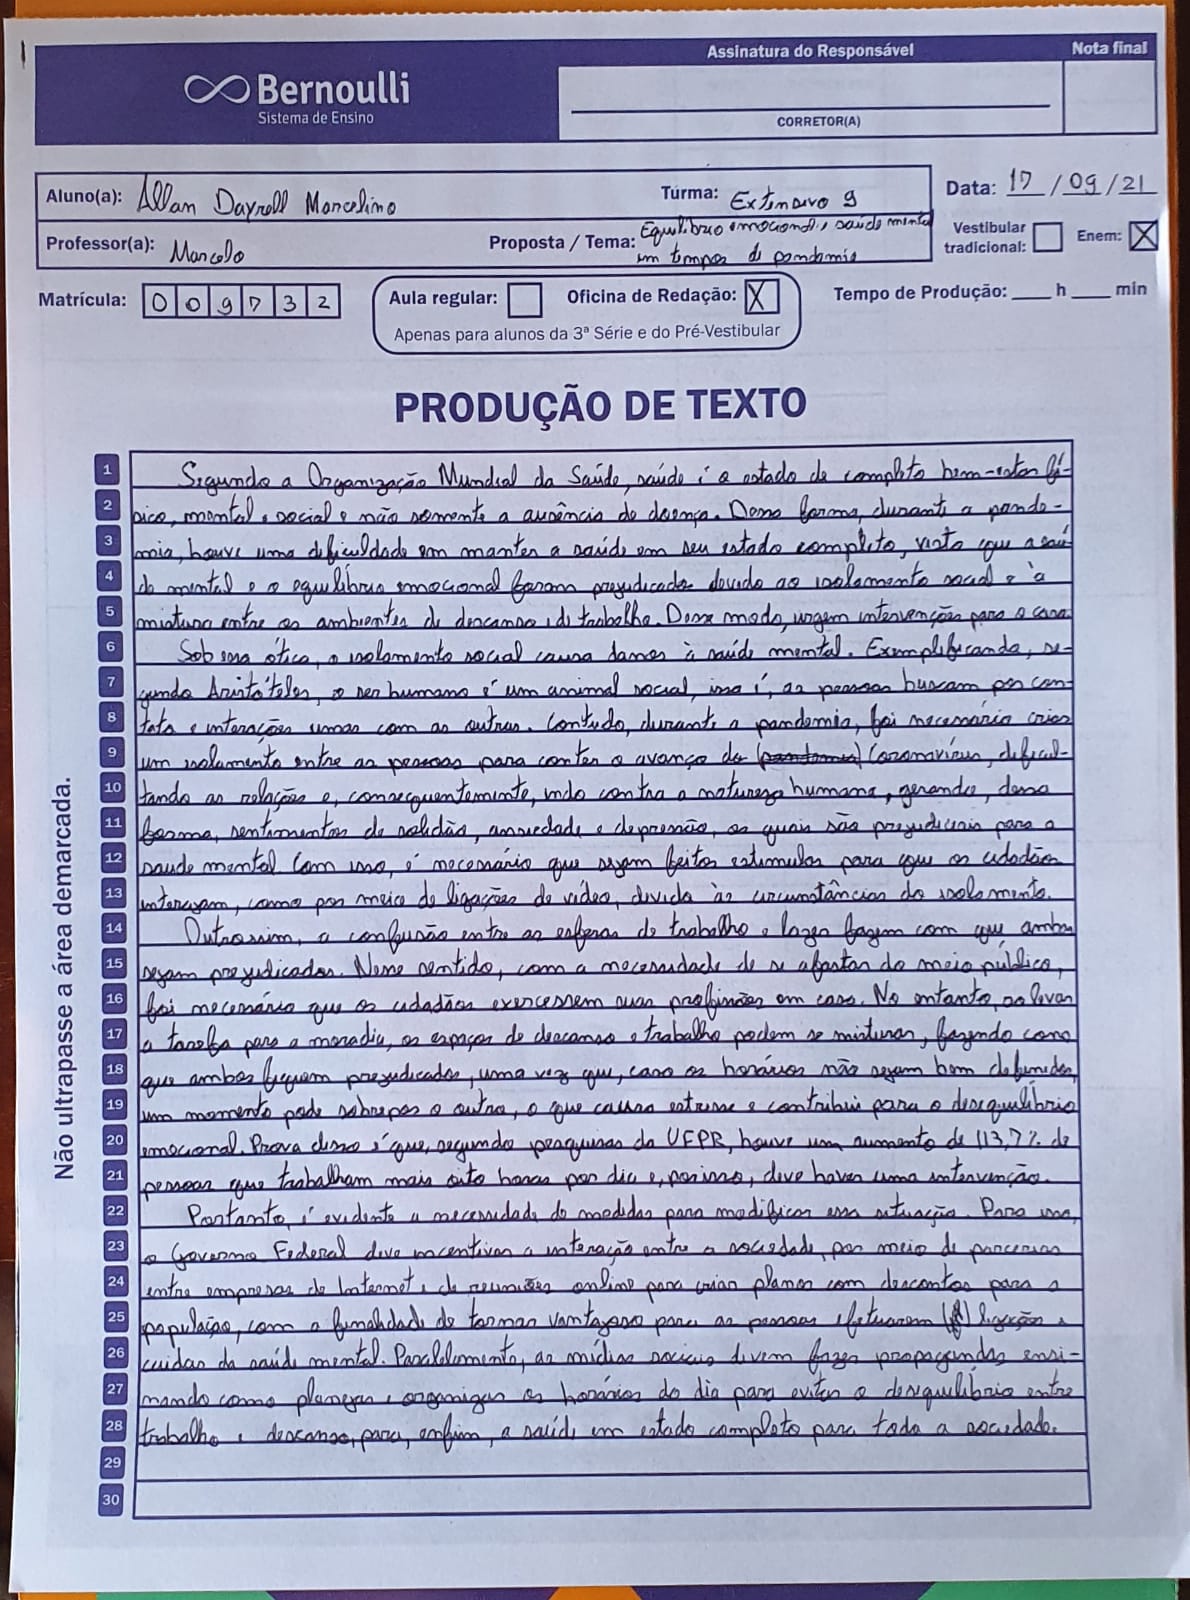 Bernoulli
Sistema de Ensino
Assinatura do Responsável
Nota final
CORRETOR(A)
Aluno(a): Allan Dayrell Marcelino
Turma: Extensivo 9
Data: 17/09/21
Professor(a): Marcelo
Proposta / Tema: Equilíbrio emocional e saúde mental
em tempos de pandemia
Vestibular tradicional:
Enem: X
Matrícula: 009732
Aula regular:
Oficina de Redação: X
Apenas para alunos da 3ª Série e do Pré-Vestibular
Tempo de Produção: ___ h ___ min
PRODUÇÃO DE TEXTO
Não ultrapasse a área demarcada.
1 Segundo a Organização Mundial da Saúde, saúde é o estado de completo bem-estar fí-
2 sico, mental e social e não somente a ausência de doença. Dessa forma, durante a pande-
3 mia, houve uma dificuldade em manter a saúde em seu estado completo, visto que a saú-
4 de mental e o equilíbrio emocional foram prejudicados devido ao isolamento social e à
5 mistura entre os ambientes de descanso e de trabalho. Desse modo, urgem intervenções para o caso.
6 Sob essa ótica, o isolamento social causa danos à saúde mental. Exemplificando, se-
7 gundo Aristóteles, o ser humano é um animal social, isso é, as pessoas buscam por con-
8 tato e interações umas com as outras. Contudo, durante a pandemia, foi necessário criar
9 um isolamento entre as pessoas para conter o avanço do (pandemia) Coronavírus, dificul-
10 tando as relações e, consequentemente, indo contra a natureza humana, gerando, dessa
11 forma, sentimentos de solidão, ansiedade e depressão, os quais são prejudiciais para a
12 saude mental. Com isso, é necessário que sejam feitos estimulos para que os cidadãos
13 interajam, como por meio de ligações de vídeo, devido às circunstâncias do isolamento.
14 Outrossim, a confusão entre as esferas de trabalho e lazer fazem com que ambos
15 sejam prejudicados. Nesse sentido, com a necessidade de se afastar do meio público,
16 foi necessário que os cidadãos exercessem suas profissões em casa. No entanto, ao levar
17 a tarefa para a moradia, os espaços de descanso e trabalho podem se misturar, fazendo com
18 que ambos fiquem prejudicados, uma vez que, caso os horários não sejam bem definidos,
19 um momento pode sobrepor o outro, o que causa estresse e contribui para o desequilíbrio
20 emocional. Prova disso é que, segundo pesquisas da UFPR, houve um aumento de 113,7% de
21 pessoas que trabalham mais oito horas por dia e, por isso, deve haver uma intervenção.
22 Portanto, é evidente a necessidade de medidas para modificar essa situação. Para isso,
23 o Governo Federal deve incentivar a interação entre a sociedade, por meio de parcerias
24 entre empresas de Internet e de reuniões online para criar planos com descontos para a
25 população, com a finalidade de tornar vantajoso para as pessoas efetuarem ligações e
26 cuidar da saúde mental. Paralelamente, as mídias sociais devem fazer propagandas ensi-
27 nando como planejar e organizar os horários do dia para evitar o desequilíbrio entre
28 trabalho e descanso, para, enfim, a saúde em estado completo para toda a sociedade.
29
30